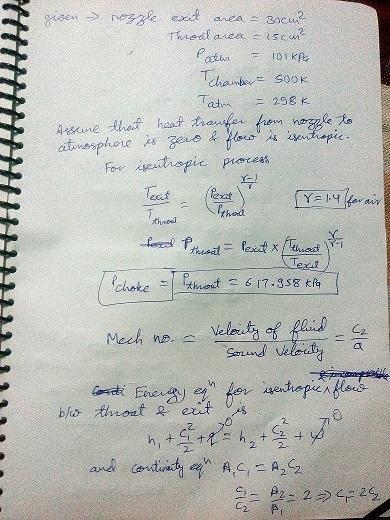 given => nozzle exit area = 30cm²
Throat area = 15cm²
P_atm = 101 kPa
T_chamber = 500K
T_atm = 298K
Assume that heat transfer from nozzle to
atmosphere is zero & flow is isentropic.
For isentropic process
T_exit/T_throat = (P_exit/P_throat)^((γ-1)/γ) γ = 1.4 for air
P_throat = P_exit × (T_throat/T_exit)^(γ/(γ-1))
P_choke = P_throat = 617.958 kPa
Mech no. = Velocity of fluid/Sound Velocity = C₂/a
Energy eqⁿ for isentropic flow
b/w throat & exit is
h₁ + C₁²/2 + q = h₂ + C₂²/2 + 0
and continuity eqⁿ A₁C₁ = A₂C₂
C₁/C₂ = A₂/A₁ = 2 => C₁ = 2C₂